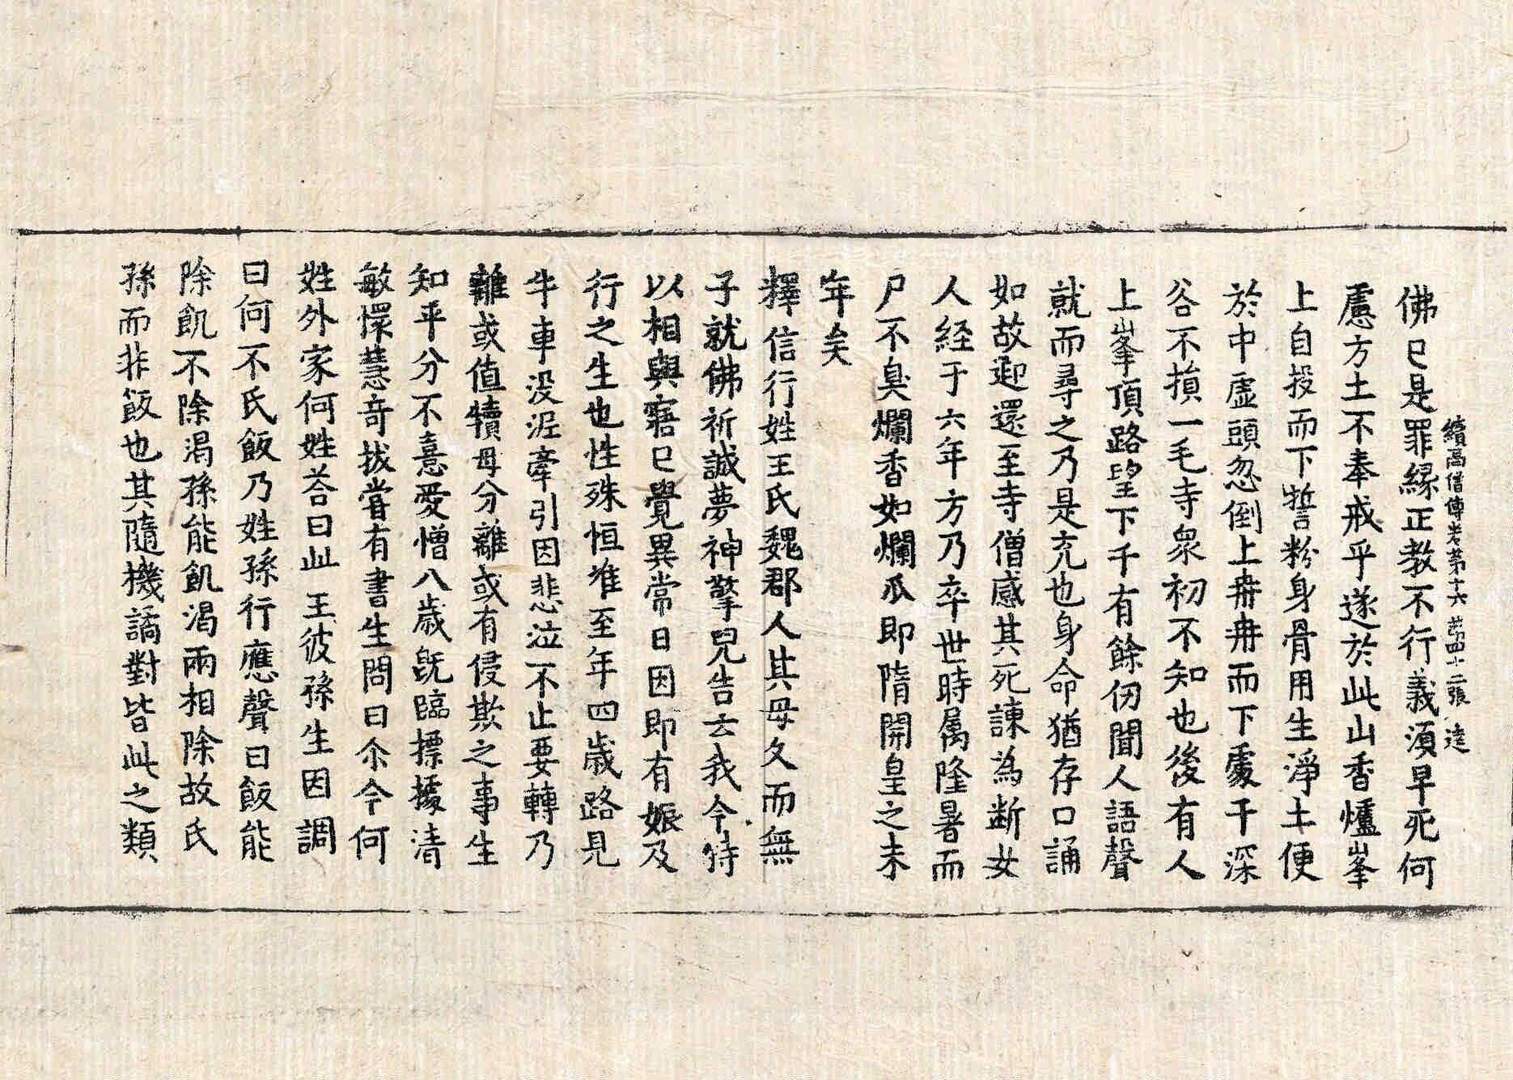 續高僧傳卷第十六 㟁四十二張 達
佛已是罪緣正教不行義須早死何
慮方土不奉戒乎遂於此山香爐峯
上自投而下誓粉身骨用生淨土便
於中虛頭忽倒上冉冉而下處于深
谷不損一毛寺衆初不知也後有人
上峯頂路望下千有餘仞聞人語聲
就而尋之乃是充也身命猶存口誦
如故迎還至寺僧感其死諫為断女
人経于六年方乃卒世時属隆暑而
尸不臭爛香如爛瓜即隋開皇之末
年矣
釋信行姓王氏魏郡人其母久而無
子就佛祈誠夢神擎兒告云我今持
以相與寤已覺異常日因即有娠及
行之生也性殊恒准至年四歲路見
牛車没泥牽引因悲泣不止要轉乃
離或值犢母分離或有侵欺之事生
知平分不憙愛憎八歲旣臨摽據清
敏懷慧奇拔甞有書生問曰尒今何
姓外家何姓荅曰此王彼孫生因調
曰何不氏飯乃姓孫行應聲曰飯能
除飢不除渴孫能飢渴兩相除故氏
孫而非飯也其隨機譎對皆此之類